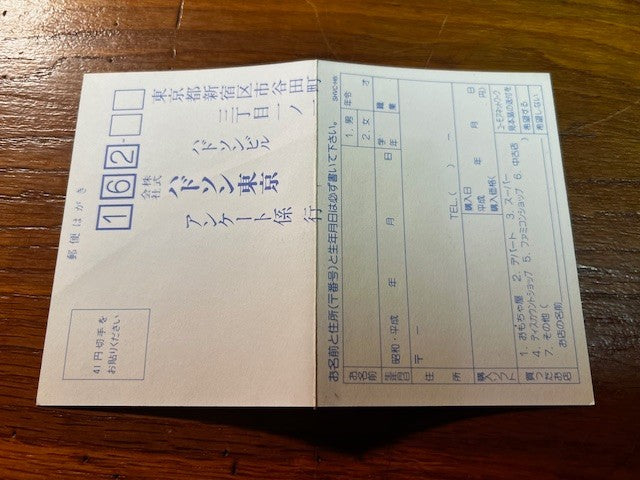 郵便はがき
162-
41円切手を
お貼りください
東京都新宿区市谷田町
三丁目一ノ一
ハドソンビル
株式
会社
ハドソン東京
アンケート係 行
SHGC-HB
お名前と住所(〒番号)と生年月日は必ず書いて下さい。
お名前
1. 男
2. 女
年令 才
職業
生年月日
昭和・平成 年 月 日
学年
住所
〒 −
TEL. ( ) −
購入ソフト
購入日
平成 年 月 日
購入価格( 円)
ユーモアネットワーク
見本誌の送付を
希望する
希望しない
買ったお店
1. おもちゃ屋 2. デパート 3. スーパー
4. ディスカウントショップ 5. ファミコンショップ 6. 中古店
7. その他(
お店の名前